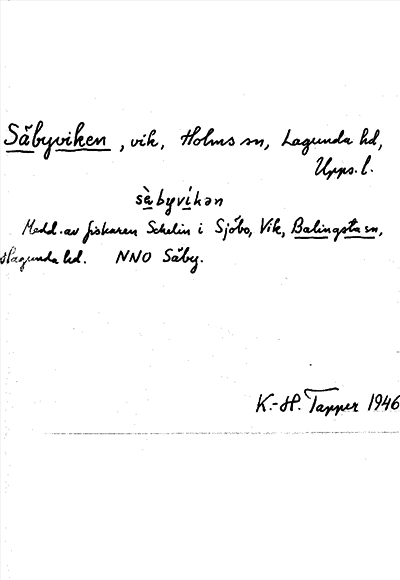 Såbyviken, vik, Holms sn, Lagunda hd,
Upps. l.
sàbyvíkən
Medd. av fiskaren Schelin i Sjöbo, Vik, Balingsta sn,
Hagunda hd. NNO Såby.
K.-H. Tapper 1946